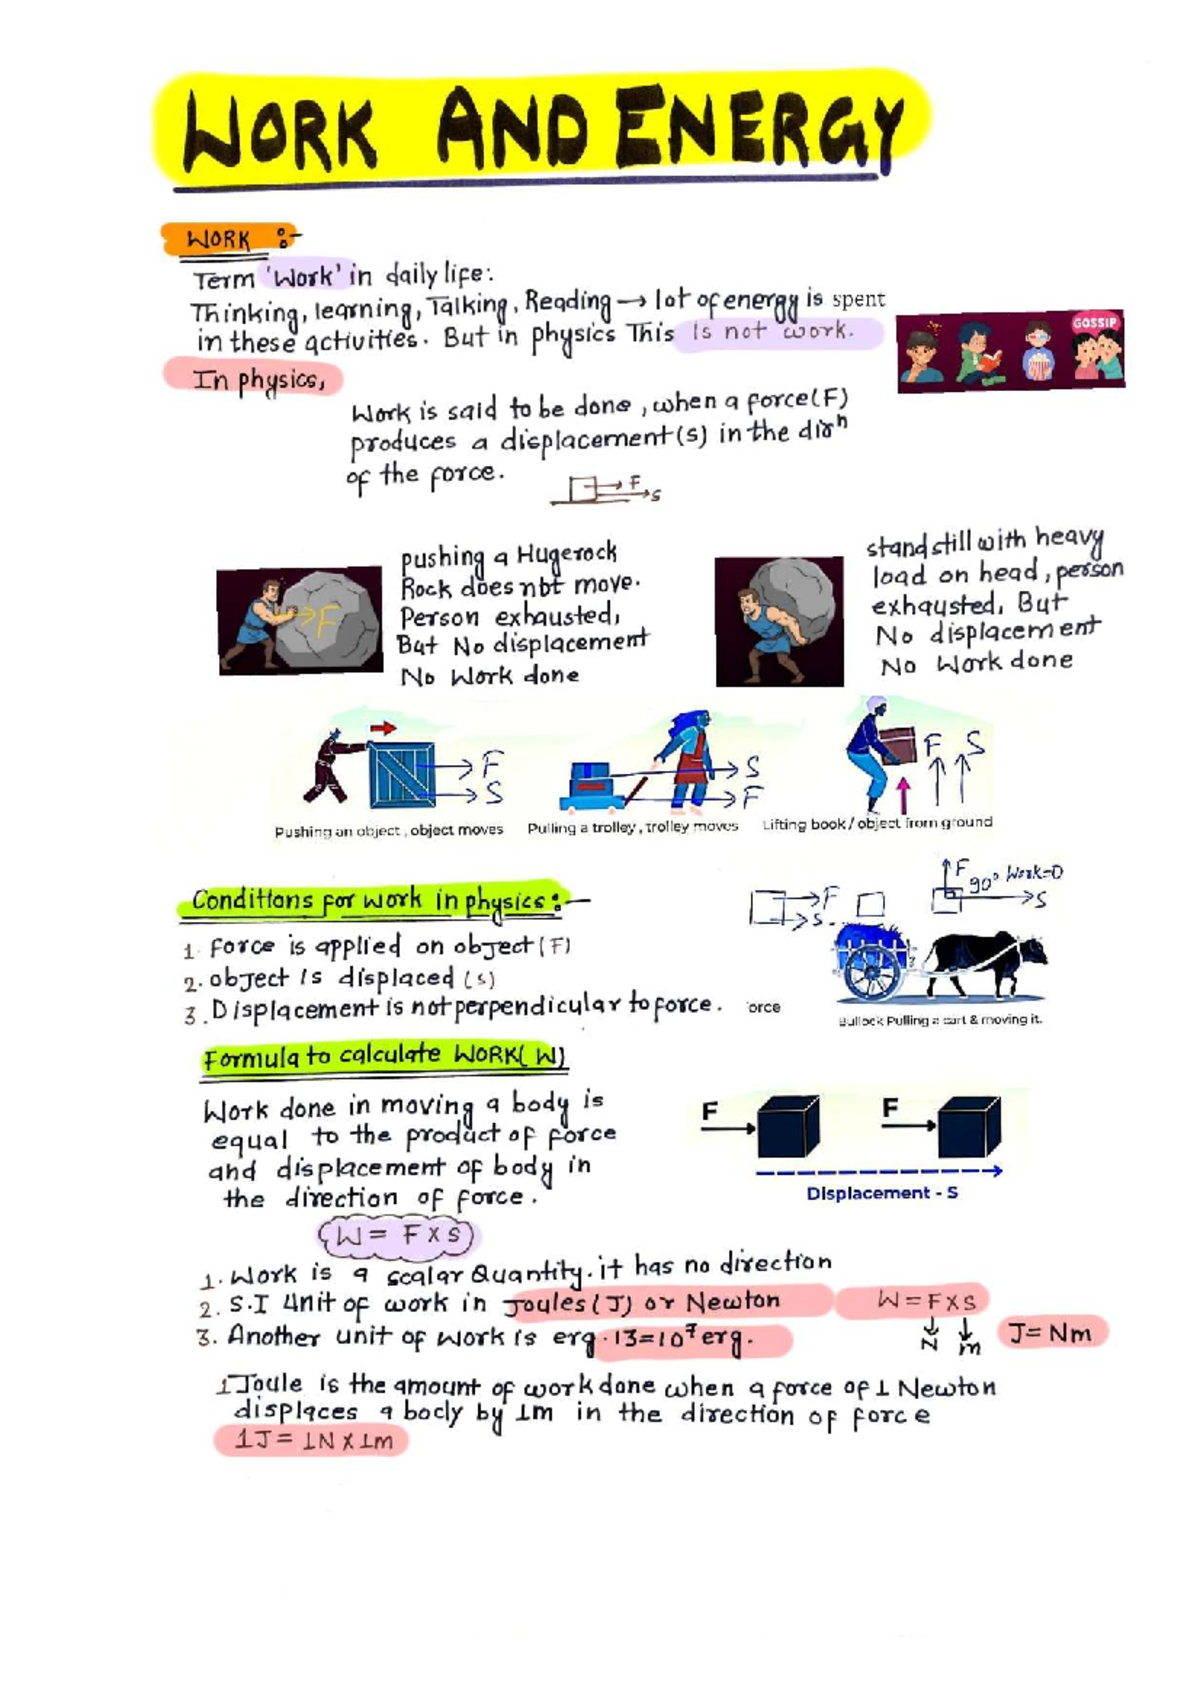 WORK AND ENERGY
WORK :-
Term 'Work' in daily life:
Thinking, learning, Talking, Reading → lot of energy is spent
in these activities. But in physics This is not work.
GOSSIP
In physics,
Work is said to be done, when a force(F)
produces a displacement(s) in the dirⁿ
of the force.
F
S
pushing a Hugerock
Rock does not move.
Person exhausted,
But No displacement
No Work done
F
stand still with heavy
load on head, person
exhausted, But
No displacement
No Work done
F
S
Pushing an object, object moves
S
F
Pulling a trolley, trolley moves
F S
Lifting book / object from ground
Conditions for work in physics :-
F
S.
F 90° Work=0
S
1. Force is applied on object (F)
2. object is displaced (s)
3. Displacement is not perpendicular to force.
orce
Bullock Pulling a cart & moving it.
Formula to calculate WORK(W)
Work done in moving a body is
equal to the product of force
and displacement of body in
the direction of force.
F F
Displacement - S
W = F x s
1. Work is a scalar Quantity. it has no direction
2. S.I Unit of work in Joules (J) or Newton
W = F x s
3. Another unit of work is erg. 1J=10⁷ erg.
N m
J = Nm
1 Joule is the amount of work done when a force of 1 Newton
displaces a body by 1m in the direction of force
1J = 1N x 1m